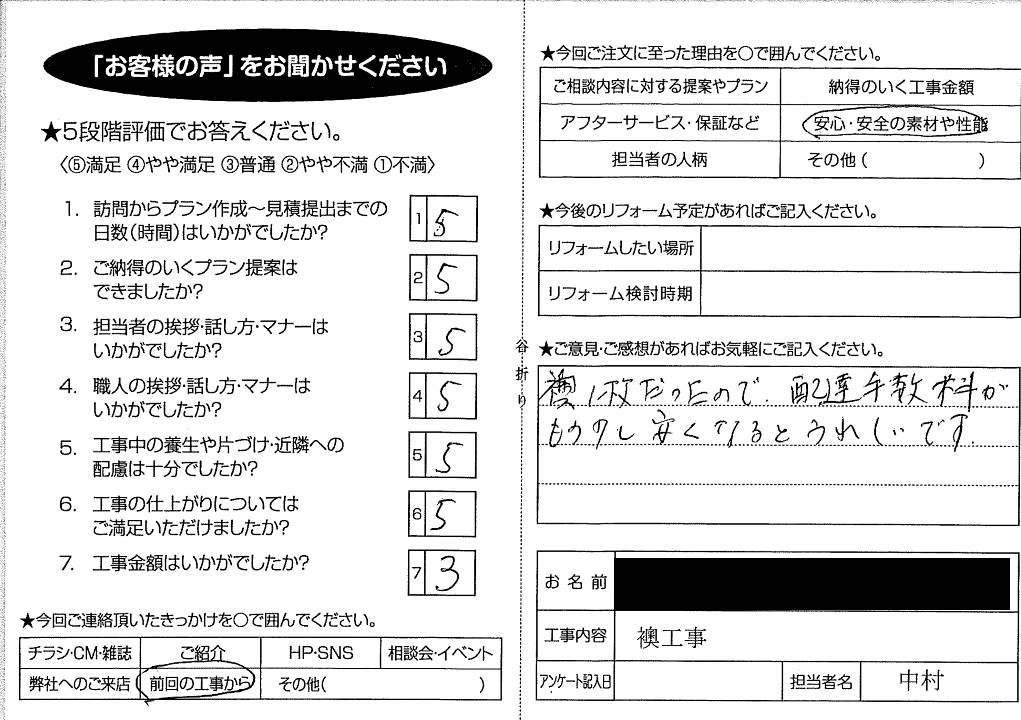 「お客様の声」をお聞かせください
★5段階評価でお答えください。
〈⑤満足 ④やや満足 ③普通 ②やや不満 ①不満〉
1. 訪問からプラン作成～見積提出までの
日数(時間)はいかがでしたか?
1 5
2. ご納得のいくプラン提案は
できましたか?
2 5
3. 担当者の挨拶・話し方・マナーは
いかがでしたか?
3 5
4. 職人の挨拶・話し方・マナーは
いかがでしたか?
4 5
5. 工事中の養生や片づけ・近隣への
配慮は十分でしたか?
5 5
6. 工事の仕上がりについては
ご満足いただけましたか?
6 5
7. 工事金額はいかがでしたか?
7 3
★今回ご連絡頂いたきっかけを○で囲んでください。
チラシ・CM・雑誌 ご紹介 HP・SNS 相談会・イベント
弊社へのご来店 前回の工事から その他( )
谷折り
★今回ご注文に至った理由を○で囲んでください。
ご相談内容に対する提案やプラン 納得のいく工事金額
アフターサービス・保証など 安心・安全の素材や性能
担当者の人柄 その他( )
★今後のリフォーム予定があればご記入ください。
リフォームしたい場所
リフォーム検討時期
★ご意見・ご感想があればお気軽にご記入ください。
襖1枚だったので、配達手数料が
もう少し安くなるとうれしいです。
お名前
工事内容 襖工事
アンケート記入日 担当者名 中村